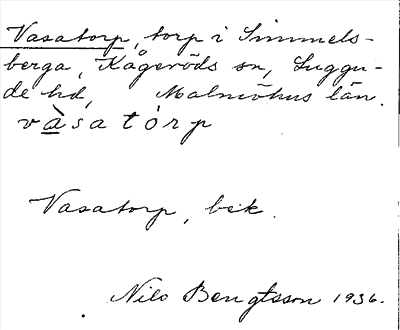 Vasatorp, torp i Simmels-
berga, Kågeröds sn, Luggu-
de hd, Malmöhus län.
và̱satórp
Vasatorp, bek.
Nils Bengtsson 1936.